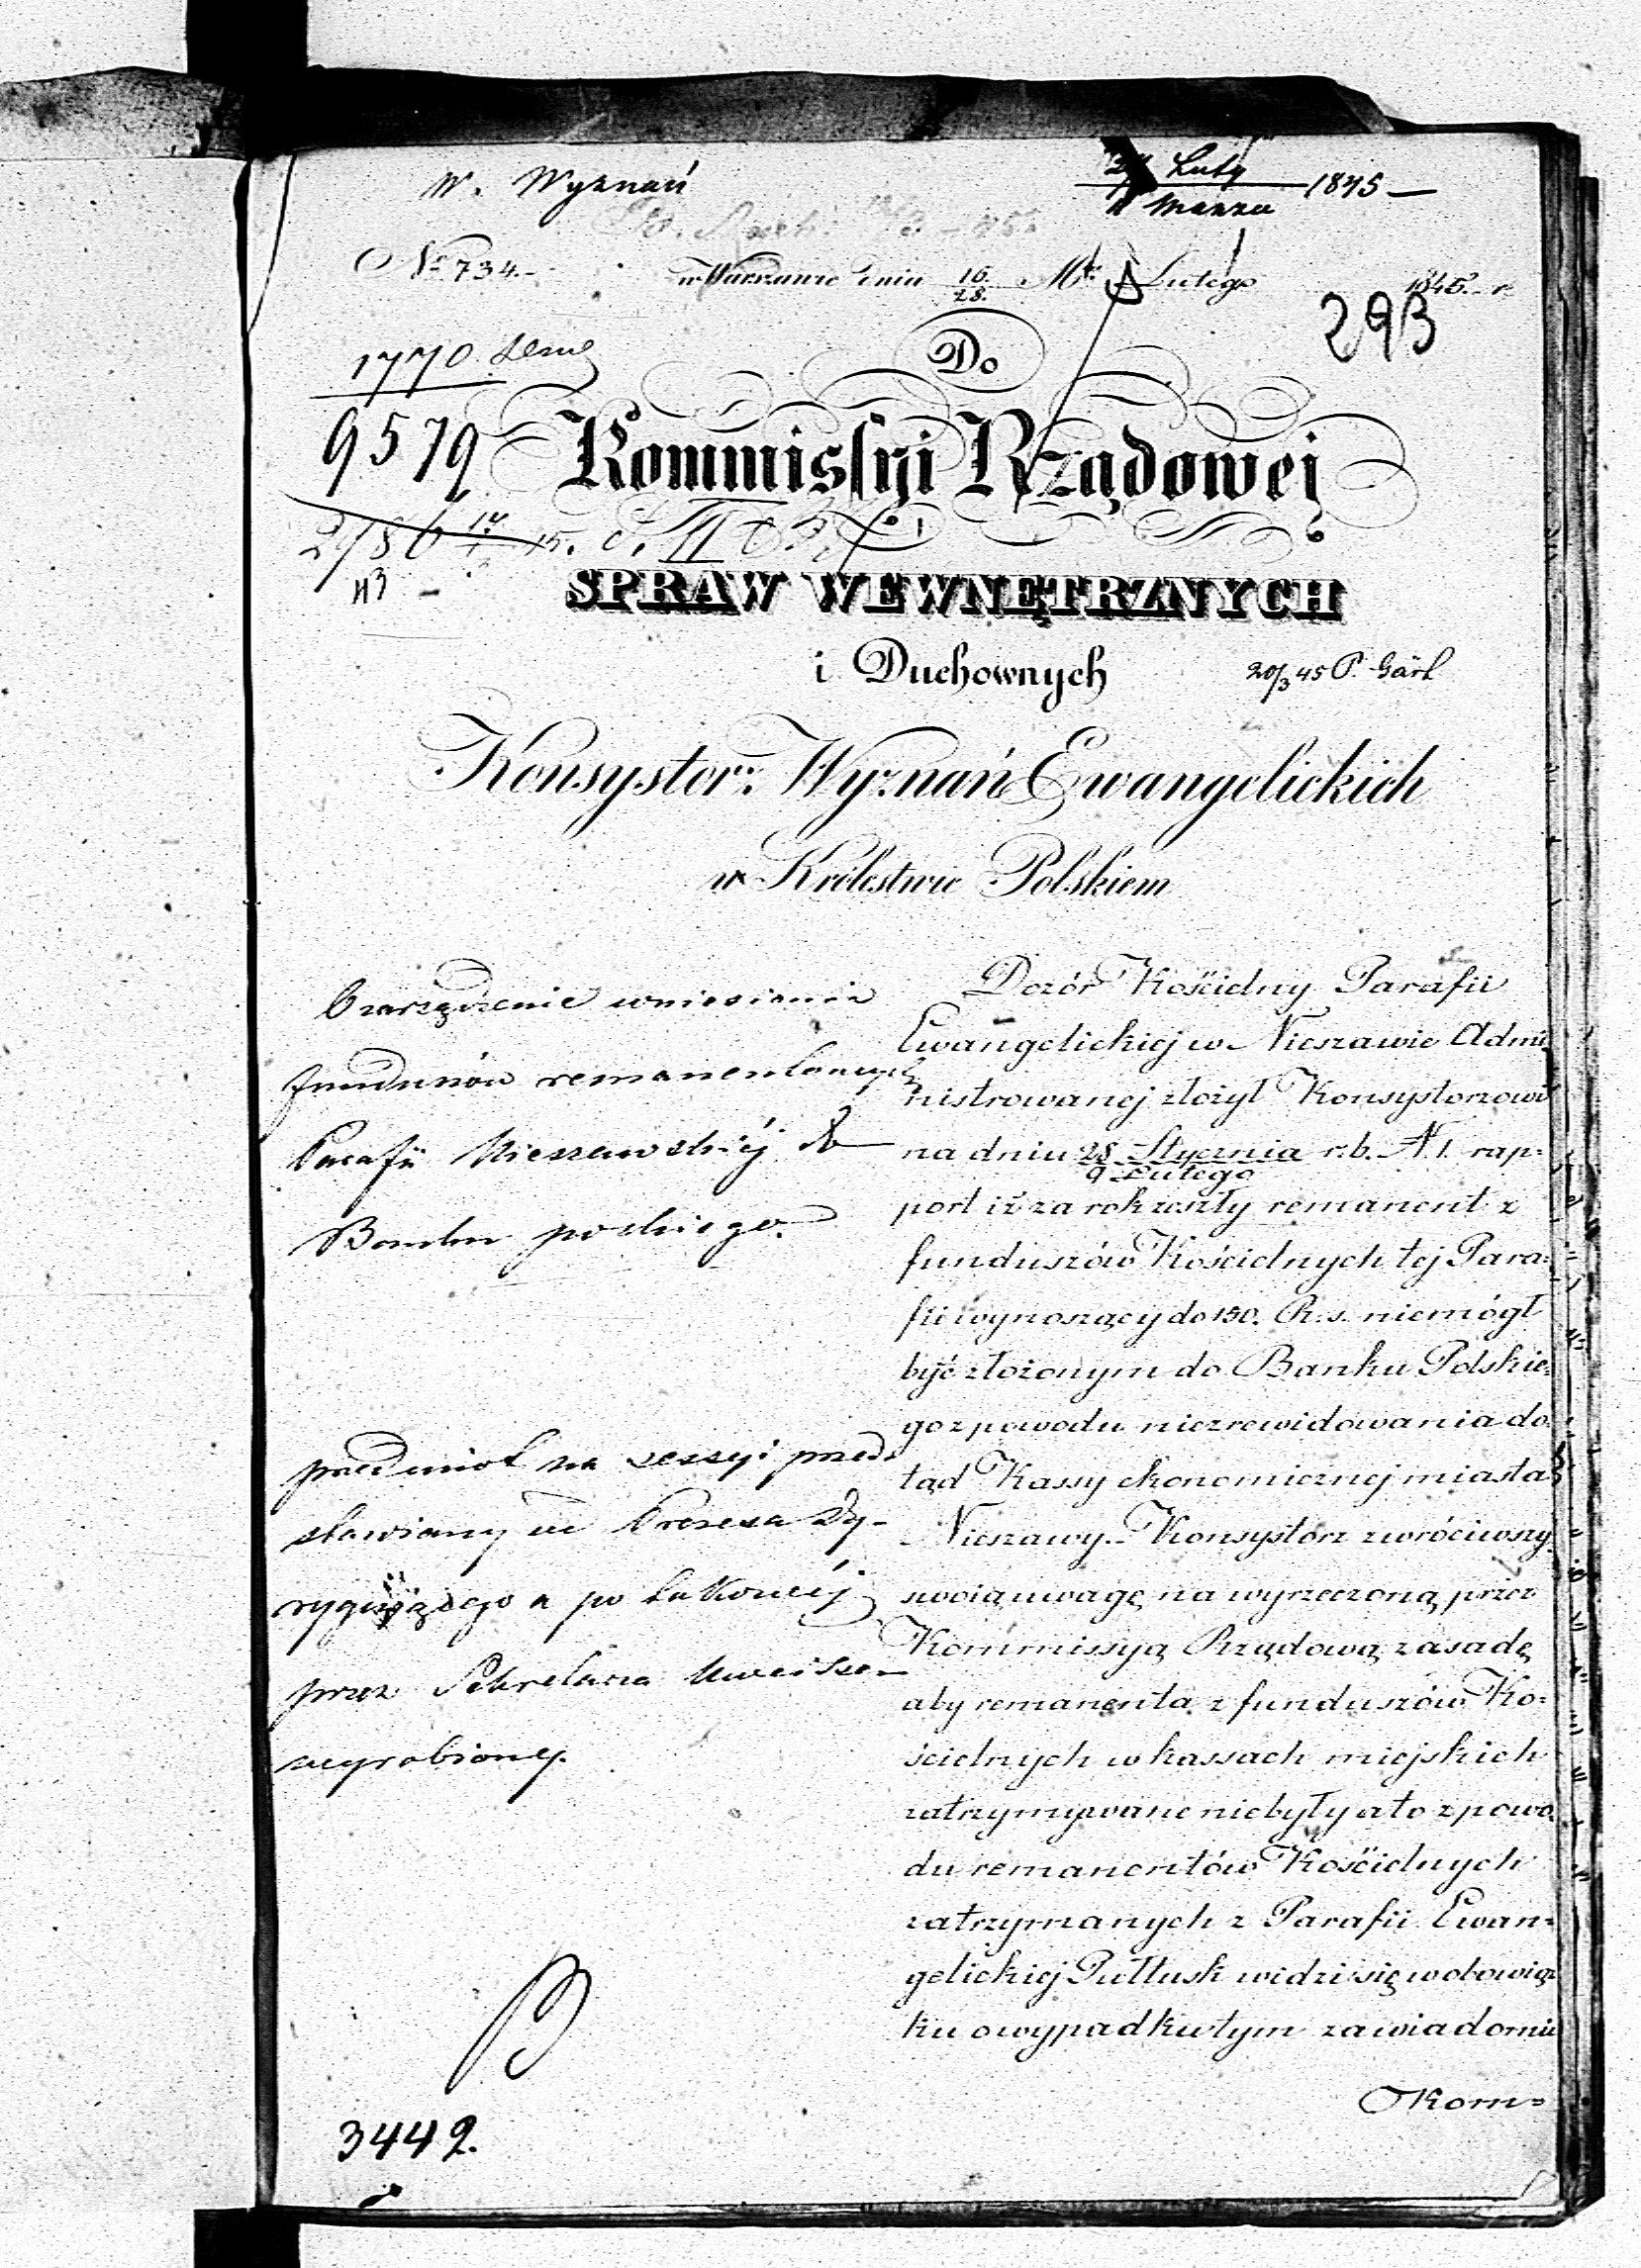 W. Wyznań
Luty
Marzca 1845 —
No 734.
w Warszawie dnia 16./28. Mca Lutego 1845. r.
293
1770
Do
9579
Kommissyi Rządowej
2786
II
N3 —
SPRAW WEWNĘTRZNYCH
i Duchownych
20/3 45 P.
Konsystorz Wyznań Ewangelickich
w Królestwie Polskiem
O zarządzenie wniesienia
funduszów remanentowych
Parafii Nieszawskiéj do
Banku polskiego.
przedmiot na sessyi przed-
stawiony JW Prezesa Dy-
rygującego a po takowéj
przez Sekretarza
wyrobiony.
Dozór Kościelny Parafii
Ewangelickiej w Nieszawie Admi-
nistrowanej złożył Konsystorzowi
na dniu 28 Stycznia/9 Lutego r. b. N. 1. rap-
port iż za rok zeszły remanent z
funduszów Kościelnych tej Para-
fii wynoszący do 150. R. s. niemógł
być złożonym do Banku Polskie-
go z powodu niezrewidowania do-
tąd Kassy ekonomicznej miasta
Nieszawy. - Konsystorz zwróciwszy
swoią uwagę na wyrzeczoną przez
Kommissyą Rządową zasadę
aby remanenta z funduszów Ko-
ścielnych w kassach miejskich
zatrzymywane niebyły a to z powo-
du remanentów Kościelnych
zatrzymanych z Parafii Ewan-
gelickiej Pułtusk widzi się w obowiąz-
ku o wypadku tym zawiadomić
Kom-
3442.